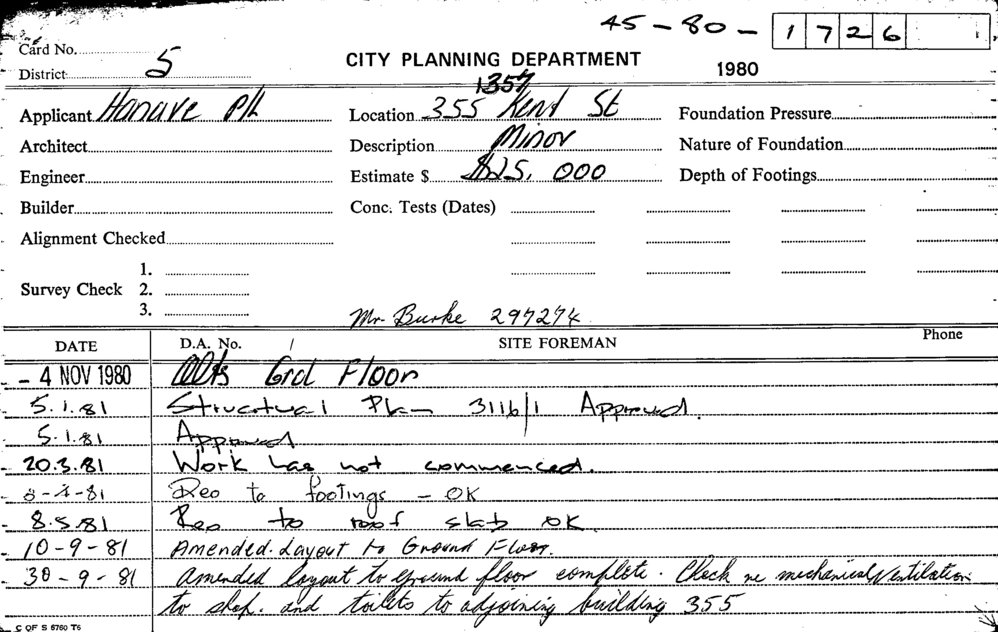 45-80- 1726
Card No.
District 5
CITY PLANNING DEPARTMENT
1980
Applicant Hanave P/L
Location 355 1357 Kent St
Foundation Pressure
Architect
Description Minor
Nature of Foundation
Engineer
Estimate $ 000
Depth of Footings
Builder
Conc. Tests (Dates)
Alignment Checked
Survey Check 1.
2.
3.
Mr. Burke 297274
DATE D.A. No. / SITE FOREMAN Phone
- 4 NOV 1980 Alts Grd Floor
5.1.81 Structual Plan 3116/1 Approved.
5.1.81 Approved
20.3.81 Work has not commenced.
-81 Reo to footings - OK
8.5.81 Reo to roof slab OK
10-9-81 Amended Layout to Ground Floor.
30-9-81 Amended layout to ground floor complete. Check re mechanical Ventilation
to shop. and toilets to adjoining building 355
C OF S 6760 T6